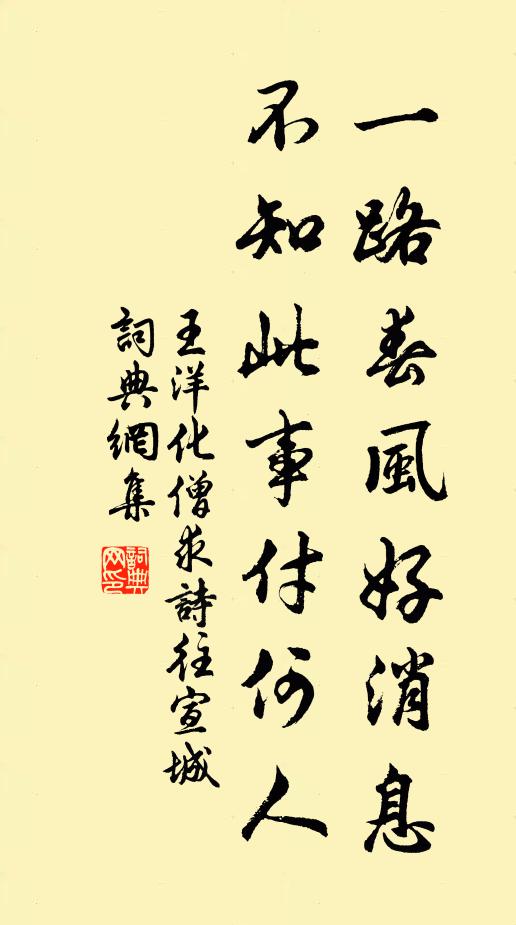 一路春風好消息
不知此事付何人
王洋化僧求詩往宣城
詞典網集
詞典网印